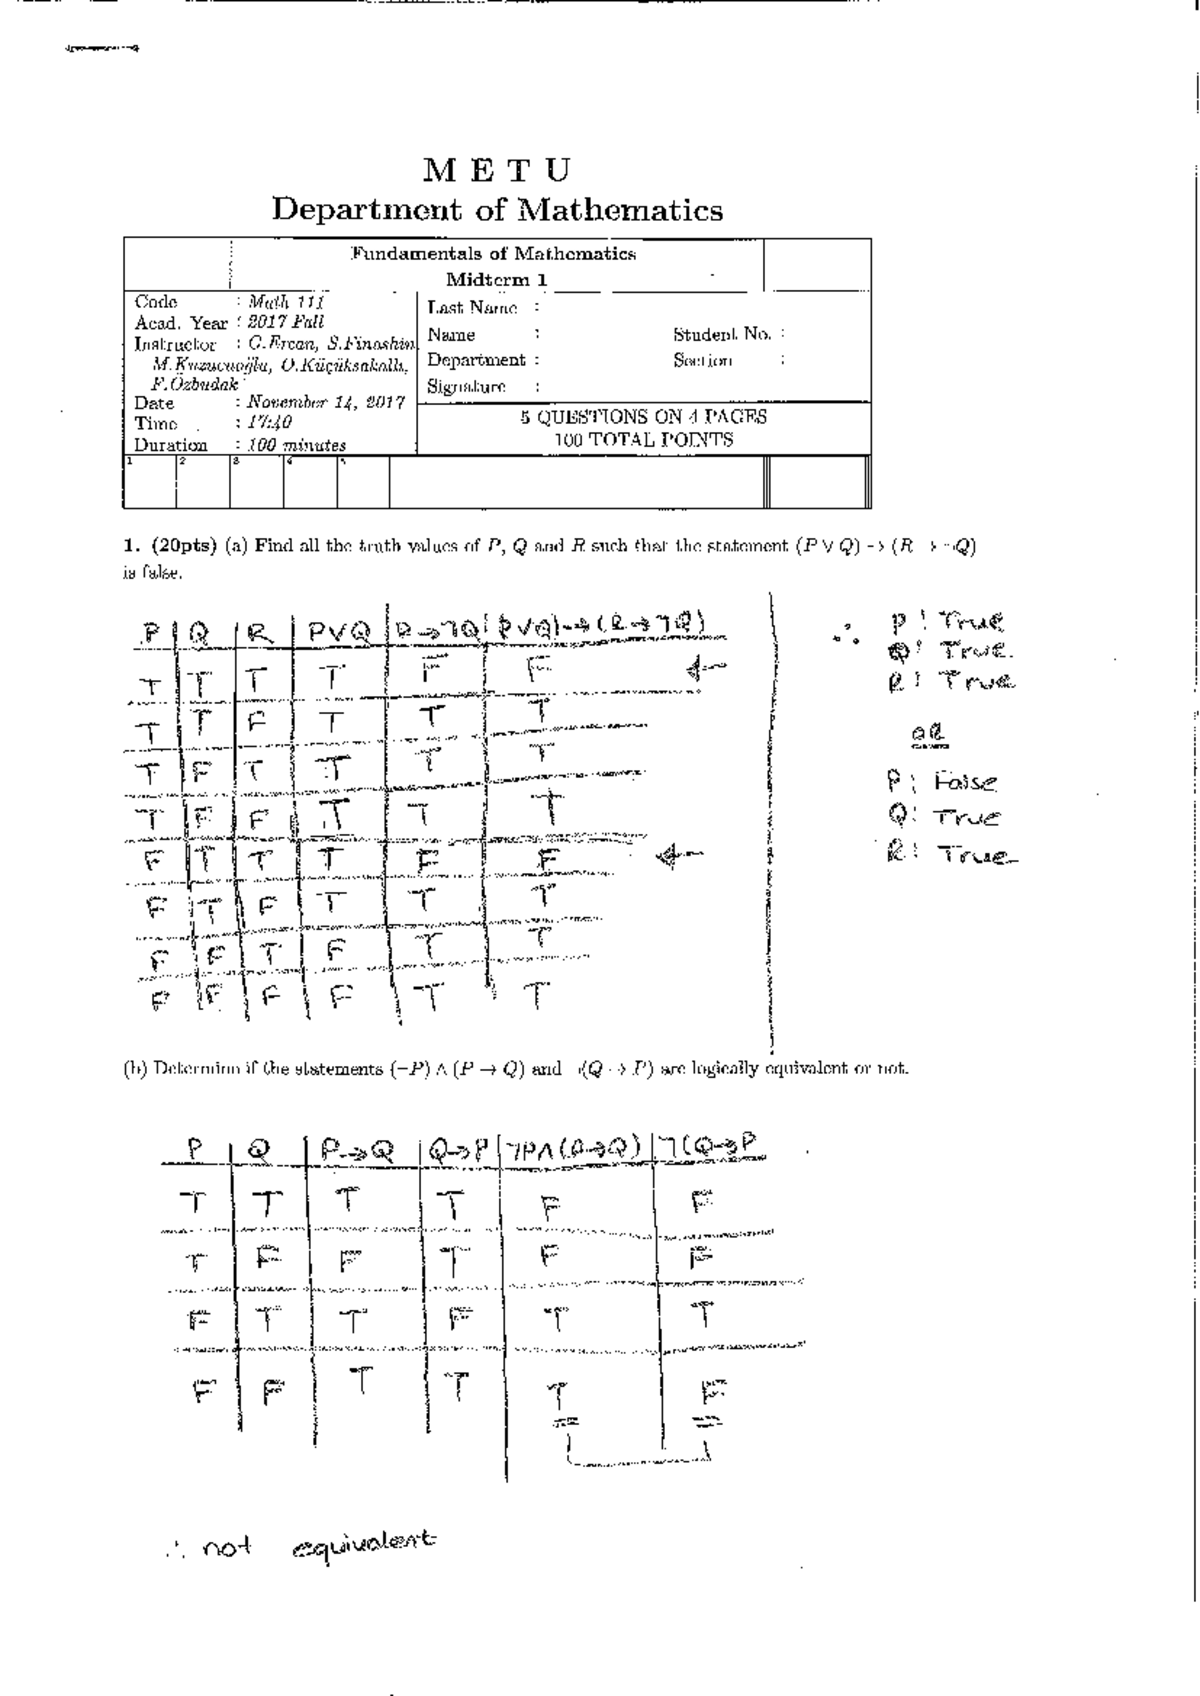 M E T U
Department of Mathematics
Fundamentals of Mathematics
Midterm 1
Code : Math 111
Acad. Year : 2017 Fall
Instructor : G.Ercan, S.Finashin,
M.Kuzucuoğlu, Ö.Küçüksakallı,
F.Özbudak
Date : November 14, 2017
Time : 17:40
Duration : 100 minutes
Last Name :
Name : Student No. :
Department : Section :
Signature :
5 QUESTIONS ON 4 PAGES
100 TOTAL POINTS
1 2 3 4 5
1. (20pts) (a) Find all the truth values of P, Q and R such that the statement (P ∨ Q) → (R → ¬Q)
is false.
P Q R P∨Q R→¬Q (P∨Q)→(R→¬Q)
T T T T F F ←
T T F T T T
T F T T T T
T F F T T T
F T T T F F ←
F T F T T T
F F T F T T
F F F F T T
∴ P: True
Q: True.
R: True
OR
P: False
Q: True
R: True
(b) Determine if the statements (¬P) ∧ (P → Q) and ¬(Q → P) are logically equivalent or not.
P Q P→Q Q→P ¬P∧(P→Q) ¬(Q→P
T T T T F F
T F F T F F
F T T F T T
F F T T T F
∴ not equivalent